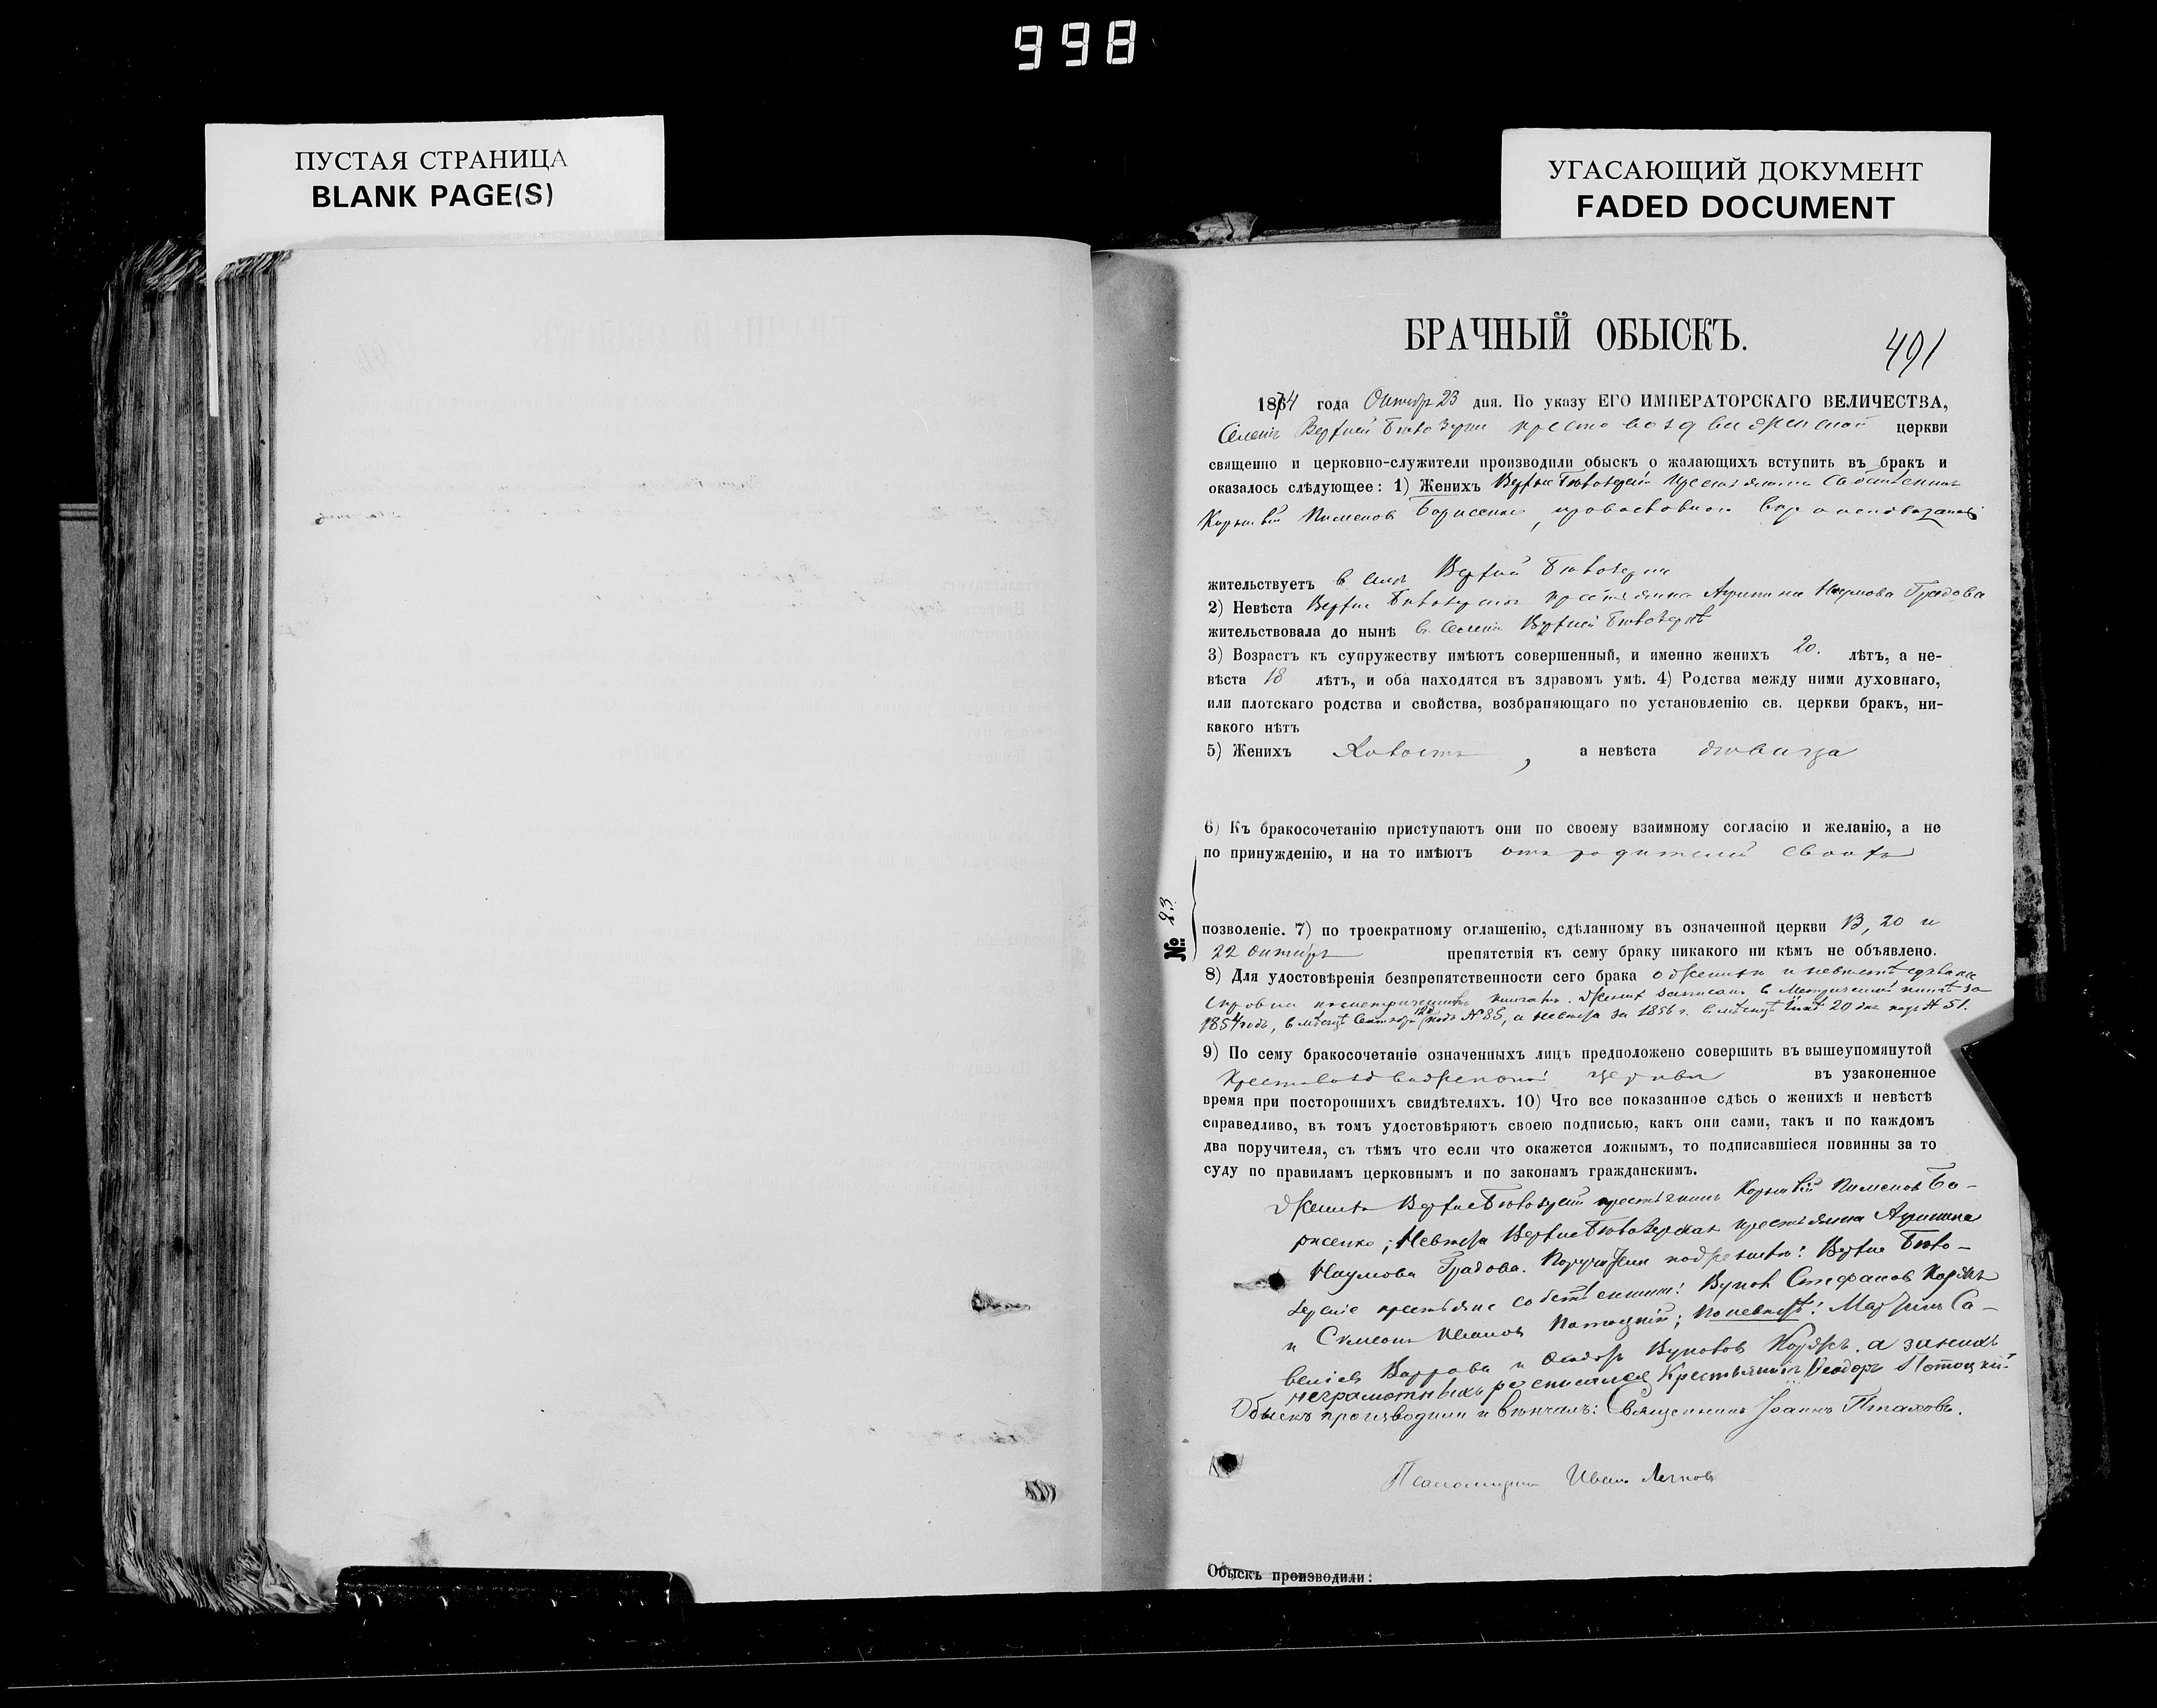 998
ПУСТАЯ СТРАНИЦА
BLANK PAGE(S)
УГАСАЮЩИЙ ДОКУМЕНТ
FADED DOCUMENT
БРАЧНЫЙ ОБЫСКЪ.
491
1874 года Октября 23 дня. По указу ЕГО ИМПЕРАТОРСКАГО ВЕЛИЧЕСТВА,
Селенія Верхней Бѣлозерки Кресто воздвиженской церкви
священно и церковно-служители производили обыскъ о жалающихъ вступить въ бракъ и
оказалось слѣдующее: 1) Женихъ Верхне Бѣлозерскій Крестьянинъ Собственникъ
Корнилій Пименовъ Борисенко, православнаго вѣроисповѣданія
жительствуетъ в селѣ Верхней Бѣлозерки
2) Невѣста Верхне Бѣлозерская крестьянка Агрипина Наумова Градова
жительствовала до нынѣ въ Селеніи Верхней Бѣлозеркѣ
3) Возрастъ къ супружеству имѣютъ совершенный, и именно женихъ 20. лѣтъ, а не-
вѣста 18 лѣтъ, и оба находятся въ здравомъ умѣ. 4) Родства между ними духовнаго,
или плотскаго родства и свойства, возбраняющаго по установленію св. церкви бракъ, ни-
какого нѣтъ
5) Женихъ Холостъ, а невѣста дѣвица
6) Къ бракосочетанію приступаютъ они по своему взаимному согласію и желанію, а не
по принужденію, и на то имѣютъ отъ родителей своихъ
№ 23
позволеніе. 7) по троекратному оглашенію, сдѣланному въ означенной церкви 13, 20 и
22 Октября препятствія къ сему браку никакого ни кѣмъ не объявлено.
8) Для удостовѣренія безпрепятственности сего брака о женихѣ и невѣстѣ сдѣлана
справка по метрическимъ книгамъ. Женихъ записанъ в Метрической книгѣ за
1854 годъ, в мѣсяцѣ Сентябрѣ 12 подъ № 85, а невѣста за 1856 г. в мѣсяцѣ 20 дня подъ № 51.
9) По сему бракосочетаніе означенныхъ лицъ предположено совершить въ вышеупомянутой
Крестовоздвиженской церкви въ узаконенное
время при постороннихъ свидѣтеляхъ. 10) Что все показанное сдѣсь о женихѣ и невѣстѣ
справедливо, въ томъ удостовѣряютъ своею подписью, какъ они сами, такъ и по каждомъ
два поручителя, съ тѣмъ что если что окажется ложнымъ, то подписавшіеся повинны за то
суду по правиламъ церковнымъ и по законамъ гражданскимъ.
Женихъ Верхне Бѣлозерскій крестьянинъ Корнилій Пименовъ Бо-
рисенко; Невѣста Верхне Бѣлозерская крестьянка Агрипина
Наумова Градова. Поручители по женихѣ: Верхне Бѣло-
зерскіе крестьяне собственники: Вуколъ Стефановъ
и Симеонъ Ивановъ Потоцкій; По невѣстѣ: Са-
веліевъ и Ѳеодоръ Вуколовъ а за нихъ
неграмотныхъ росписался Крестьянинъ Ѳеодоръ Потоцкій
Обыскъ производили и вѣнчалъ: Священникъ Іоаннъ Птаховъ.
Псаломщикъ Иванъ
Обыскъ производили: